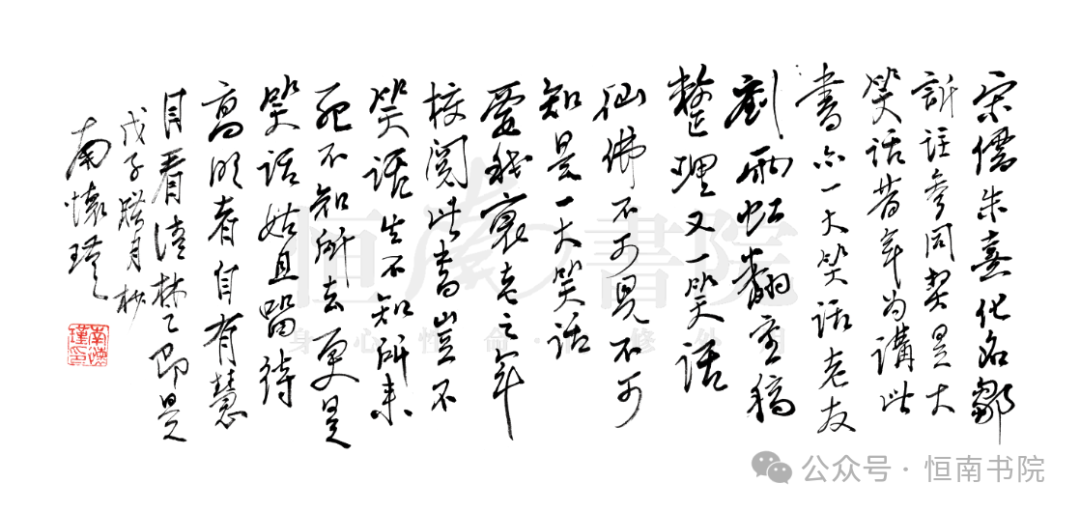 宋儒朱熹化名鄒
訢註参同契是大
笑话昔年为講此
書亦一大笑话老友
劉雨虹翻稿
整理又一笑话
仙佛不可見不可
知是一大笑话
要我衰老之年
校閲此書豈不
笑话生不知所来
死不知所去更是
笑话姑且留待
高明者自有慧
目看清楚即是
戊子腊月抄
南懷瑾
恒南書院
身心性命
公众号 · 恒南书院